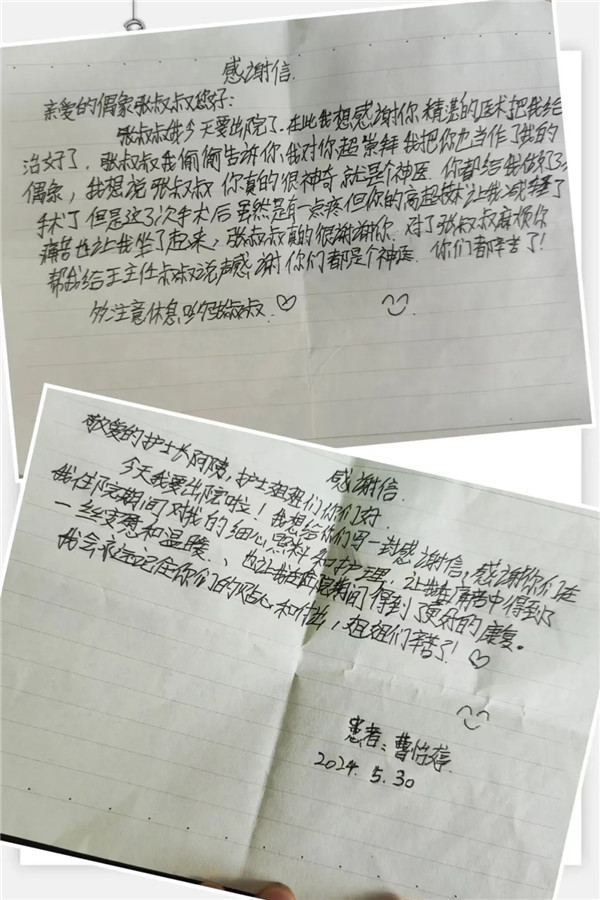 感谢信.
亲爱的偶象张叔叔您好:
张叔叔我今天要出院了.在此我想感谢你精湛的医术把我给
治好了,张叔叔我偷偷告诉你,我对你超崇拜我把你也当作了我的
偶象,我想说张叔叔你真的很神奇就是个神医.你都给我做了3次
手术了但是这3次手术后虽然是有一点疼但你的高超技术让我减轻了
痛苦也让我坐了起来,张叔叔真的很谢谢你.对了张叔叔麻烦你
帮我给王主任叔叔说声感谢你们都是个神医.你们都辛苦了!
多注意休息哟张叔叔.
感谢信.
敬爱的护士长阿姨,护士姐姐们你们好.
今天我要出院啦!我想给你们写一封感谢信,感谢你们在
我住院期间对我的细心照料和护理,让我在痛苦中得到了
一丝安慰和温暖、也让我在住院期间得到了更好的康复。
我会永远记住你们的贴心和付出,姐姐们辛苦了!
患者:曹怡婷.
2024.5.30